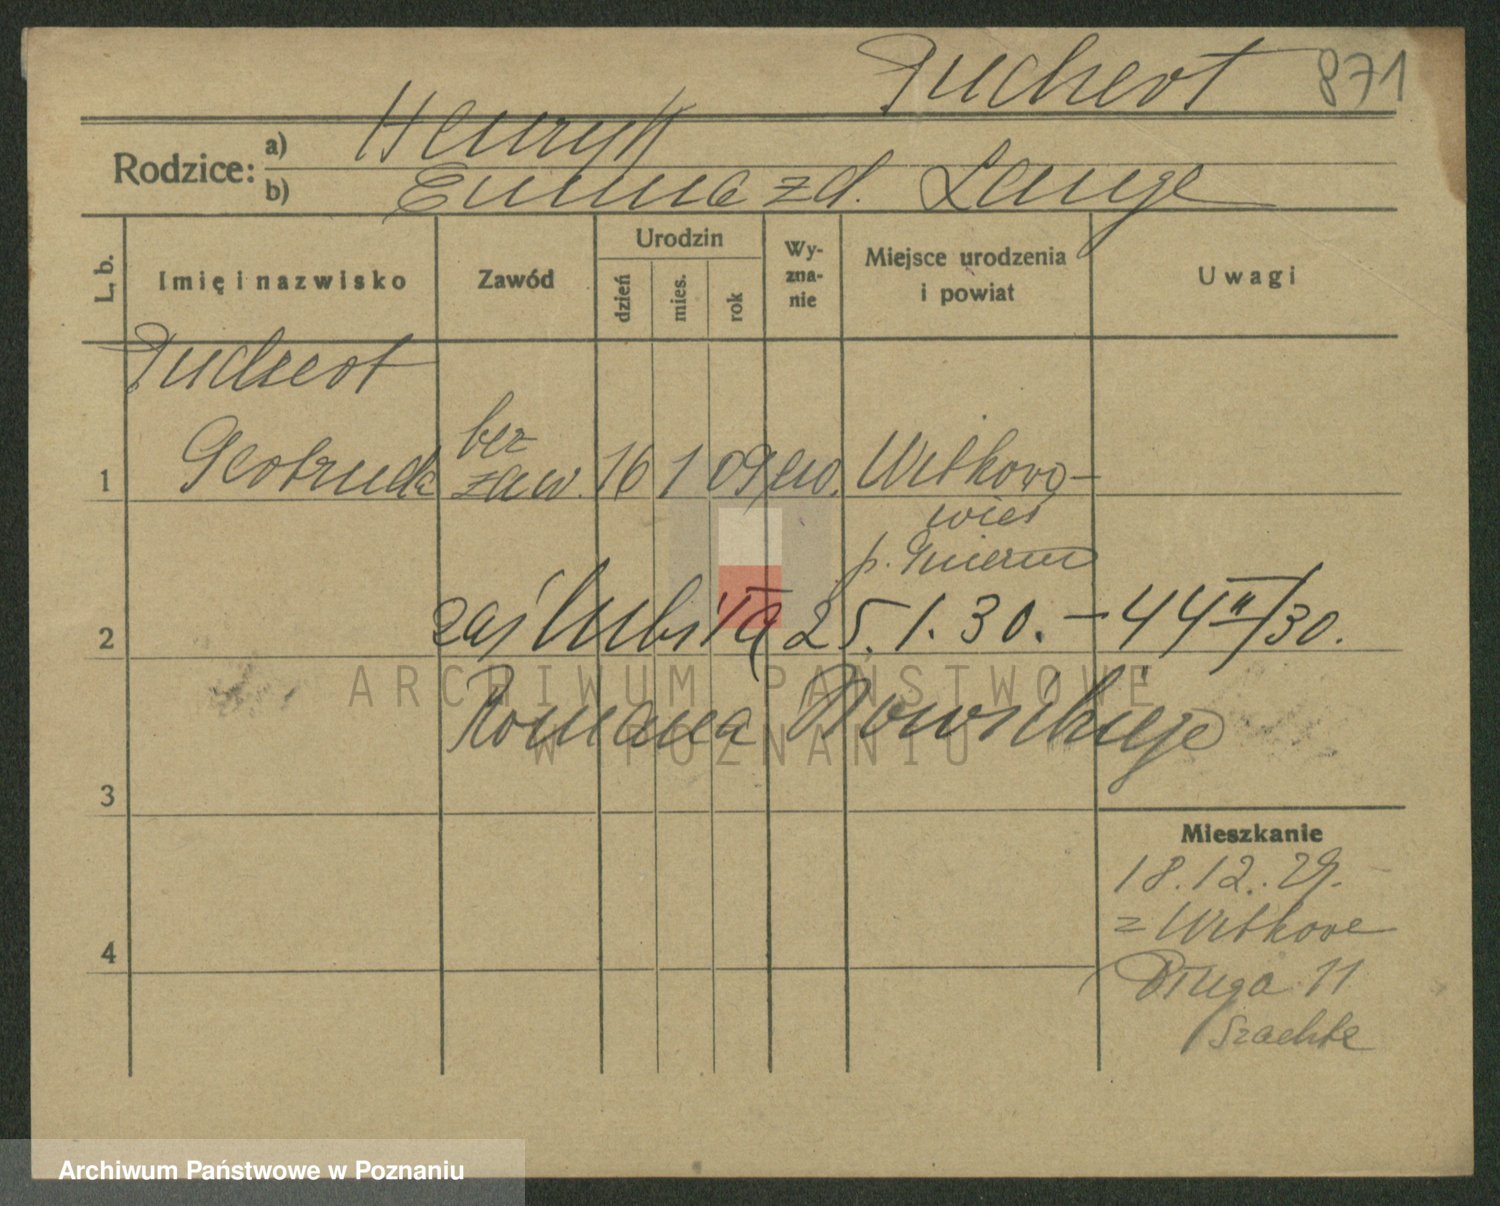 Puchert 871
Rodzice:
a) Henryk
b) Emma zd. Lange
L. b.
Imię i nazwisko
Zawód
Urodzin
dzień
mies.
rok
Wy-
zna-
nie
Miejsce urodzenia
i powiat
Uwagi
Puchert
bez
1 Gertruda zaw. 16 1 09 ew. Witkowo-
wieś
p. Gniezno
2 zaślubiła 25.1.30. – 44 II/30.
Romana
3
Mieszkanie
18.12.29.
z Witkowa
4
Długa 11
ARCHIWUM PAŃSTWOWE
W POZNANIU
Archiwum Państwowe w Poznaniu